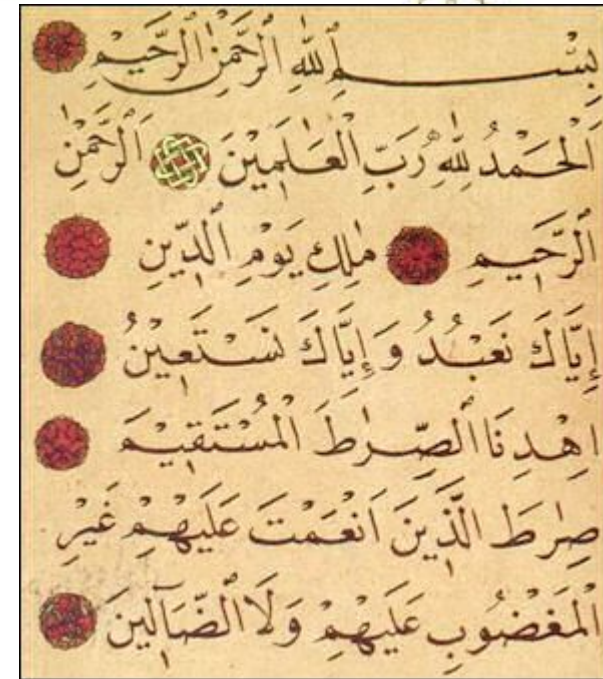 بِسْمِ ٱللّٰهِ الرَّحْمٰنِ الرَّحِيْمِ
اَلْحَمْدُ لِلّٰهِ رَبِّ الْعَالَمِيْنَ اَلرَّحْمٰنِ
الرَّحِيْمِ مٰلِكِ يَوْمِ الدِّيْنِ
إِيَّاكَ نَعْبُدُ وَإِيَّاكَ نَسْتَعِيْنُ
اِهْدِنَا الصِّرٰطَ الْمُسْتَقِيْمَ
صِرٰطَ الَّذِيْنَ اَنْعَمْتَ عَلَيْهِمْ غَيْرِ
الْمَغْضُوْبِ عَلَيْهِمْ وَلَا الضَّآلِّيْنَ